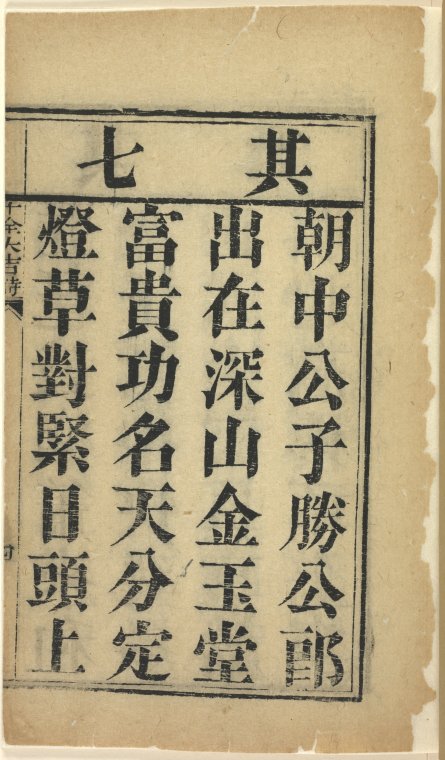 其七
朝中公子勝公郎
出在深山金玉堂
富貴功名天分定
燈草對緊日頭上